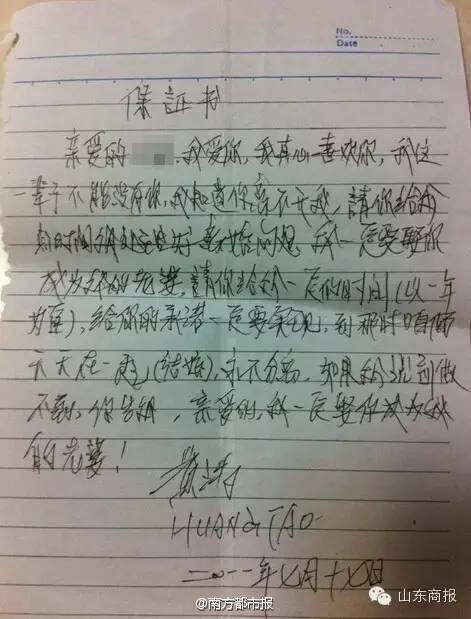 No.
Date
保证书
亲爱的 我爱你，我真心喜欢你，我这
一辈子不能没有你，我知道你离不开我，請你给我
时间 我 处 好 婚姻问题，我一定要娶你
成为我的老婆，請你给我一定的时间(以一年
为重)，给你的承诺一定要实现，到那时咱俩
天天在一起(结婚)，永不分离，如果我说到做
不到，你告我，亲爱的，我一定娶你成为我
的老婆！
黄涛
HUANG TAO
二〇一一年七月十七日
@南方都市报
山东商报